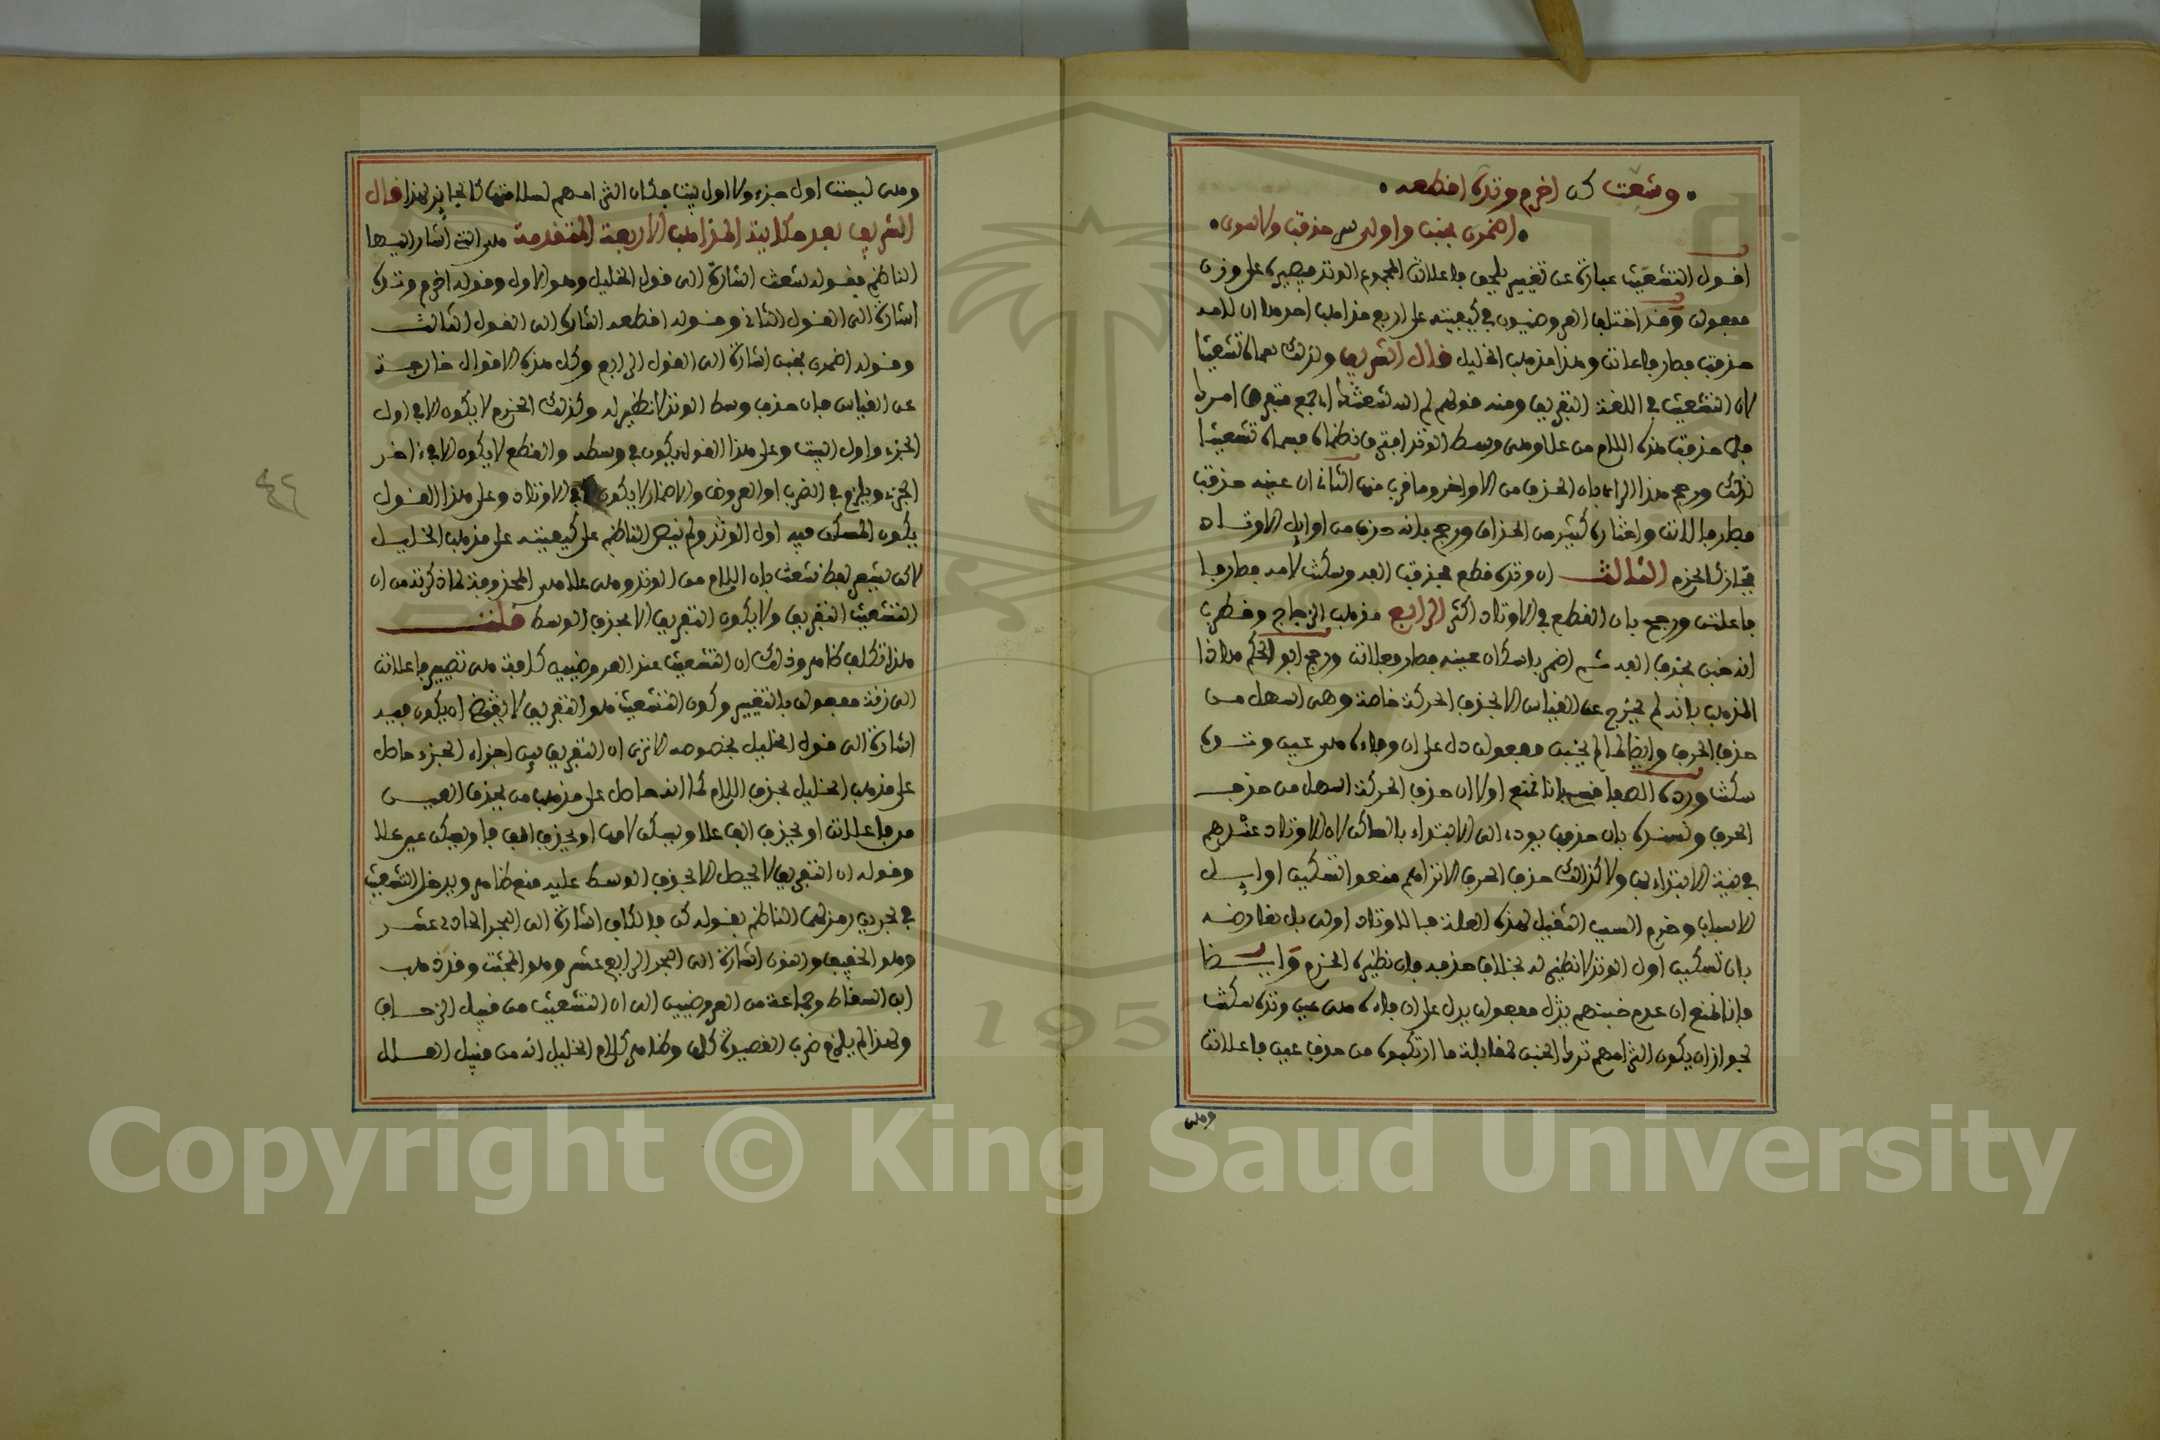 وشعث كن اخرم وتده اقطعه
اضمرن بخبن واولى س حذفت ولا سوى
اقول التشعيث عبارة عن تغيير يلحق فاعلاتن المجموع الوتد فيصيره على وزن
مفعولن وقد اختلف العروضيون في كيفيته على اربع مذاهب احدها ان لامه
حذفت فصار فاعاتن وهذا مذهب الخليل قال الشريف ولذلك سماه تشعيثا
لان التشعيث في اللغة التفريق ومنه قولهم لم الله شعثك اي جمع متفرق امرك
فلما حذفت هذه اللام من علا وهي وسط الوتد افترق نظمه فسماه تشعيثا
لذلك ورجح هذا الراي بان الحذف من الاواخر وما قرب منها الثاني ان عينه حذفت
فصار فالاتن واختاره كثير من الحذاق ورجح بانه حذف من اوايل الاوتاد
فجاز كالخرم الثالث ان وتده قطع فحذفت الفه وسكنت لامه فصار فا
فاعلتن ورجح بان القطع في الاوتاد اكثر الرابع مذهب الزجاج وقطرب
انه خبن بحذف الفه ثم اضمر باسكان عينه فصار فعلاتن ورجح ابو الحكم هذا
المذهب بانه لم يخرج عن القياس الا بحذف الحركة خاصة وهي اسهل من
حذف الحرف وايضا لما لم يخبن مفعولن دل على ان وفاءه هي عين وتده
سكنت ورده الصفاقسي بانا نمنع اولا ان حذف الحركة اسهل من حذف
الحرف ولسنده بان حذفه يوده الى الابتداء بالساكن لان الاوتاد عندهم
في نية الابتداء بها ولا كذلك حذف الحرف الا تراهم منعوا تسكين اوايل
الاسباب وخرم السبب الثقيل لهذه العلة فالاوتاد اولى بل نعارضه
بان تسكين اول الوتد لا نظير له بخلاف حذفه فان نظيره الخرم وايضا
فانا نمنع ان عدم خبنهم يدل مفعولن يدل على ان فاءه هي عين وتده سكنت
لجواز ان يكون التزامهم ترك الخبن لمقابلة ما ارتكبوه من حذف عين فاعلاتن
وهي
وهي ليست اول جزء ولا اول بيت فكان التزامهم لسلامتها كالجابر لهذا قال
الشريف بعد حكاية المذاهب الاربعة المتقدمة هي التي اشار اليها
الناظم فقوله شعث اشارة الى قول الخليل وهو الاول وقوله اخرم وتده
اشارة الى القول الثاني وقوله اقطعه اشارة الى القول الثالث
وقوله اضمرن بخبن اشارة الى القول الرابع وكل هذه الاقوال خارجة
عن القياس فان حذف وسط الوتد لا نظير له وكذلك الخرم لا يكون الا في اول
الجزء واول البيت وعلى هذا القول يكون في وسطه والقطع لا يكون الا في اخر
الجزء ويلزم في الضرب او العروض والاضمار لا يكون في الاوتاد وعلى هذا القول
يكون المسكن فيه اول الوتد ولم ينص الناظم على كيفيته على مذهب الخليل
لاكن يشعر لفظ شعث بان اللام من الوتد وهي علا هي المحذوفة لما ذكرته من ان
التشعيث التفريق ولا يكون التفريق الا بحذف الوسط قلت
هذا تكلف ظاهر وذلك ان التشعيث عند العروضيين كافة هي تصيير فاعلاتن
الى زنة مفعولن بالتغيير وكون التشعيث هو التفريق لا يقتضي ان يكون فيه
اشارة الى قول الخليل بخصوصه الا ترى ان التفريق بين اجزاء الجزء حاصل
على مذهب الخليل بحذف اللام كما انه حاصل على مذهب من يحذف العين
من فاعلاتن او يحذف الف علا ويسكن لامه او يحذف الف فا ويسكن عين علا
وقوله ان التفريق لا يحصل الا بحذف الوسط عليه منع ظاهر ويدخل التشعيث
في بحرين رمز لهما الناظم بقوله كن فالكاف اشارة الى البحر الحادي عشر
وهو الخفيف والنون اشارة الى البحر الرابع عشر وهو المجتث وقد ذهب
ابن السقاط وجماعة من العروضيين الى ان التشعيث من قبيل الزحاف
ولهذا لم يلزم ضرب القصيدة كلها وظاهر كلام الخليل انه من قبيل العلل
٤٢
Copyright © King Saud University
195